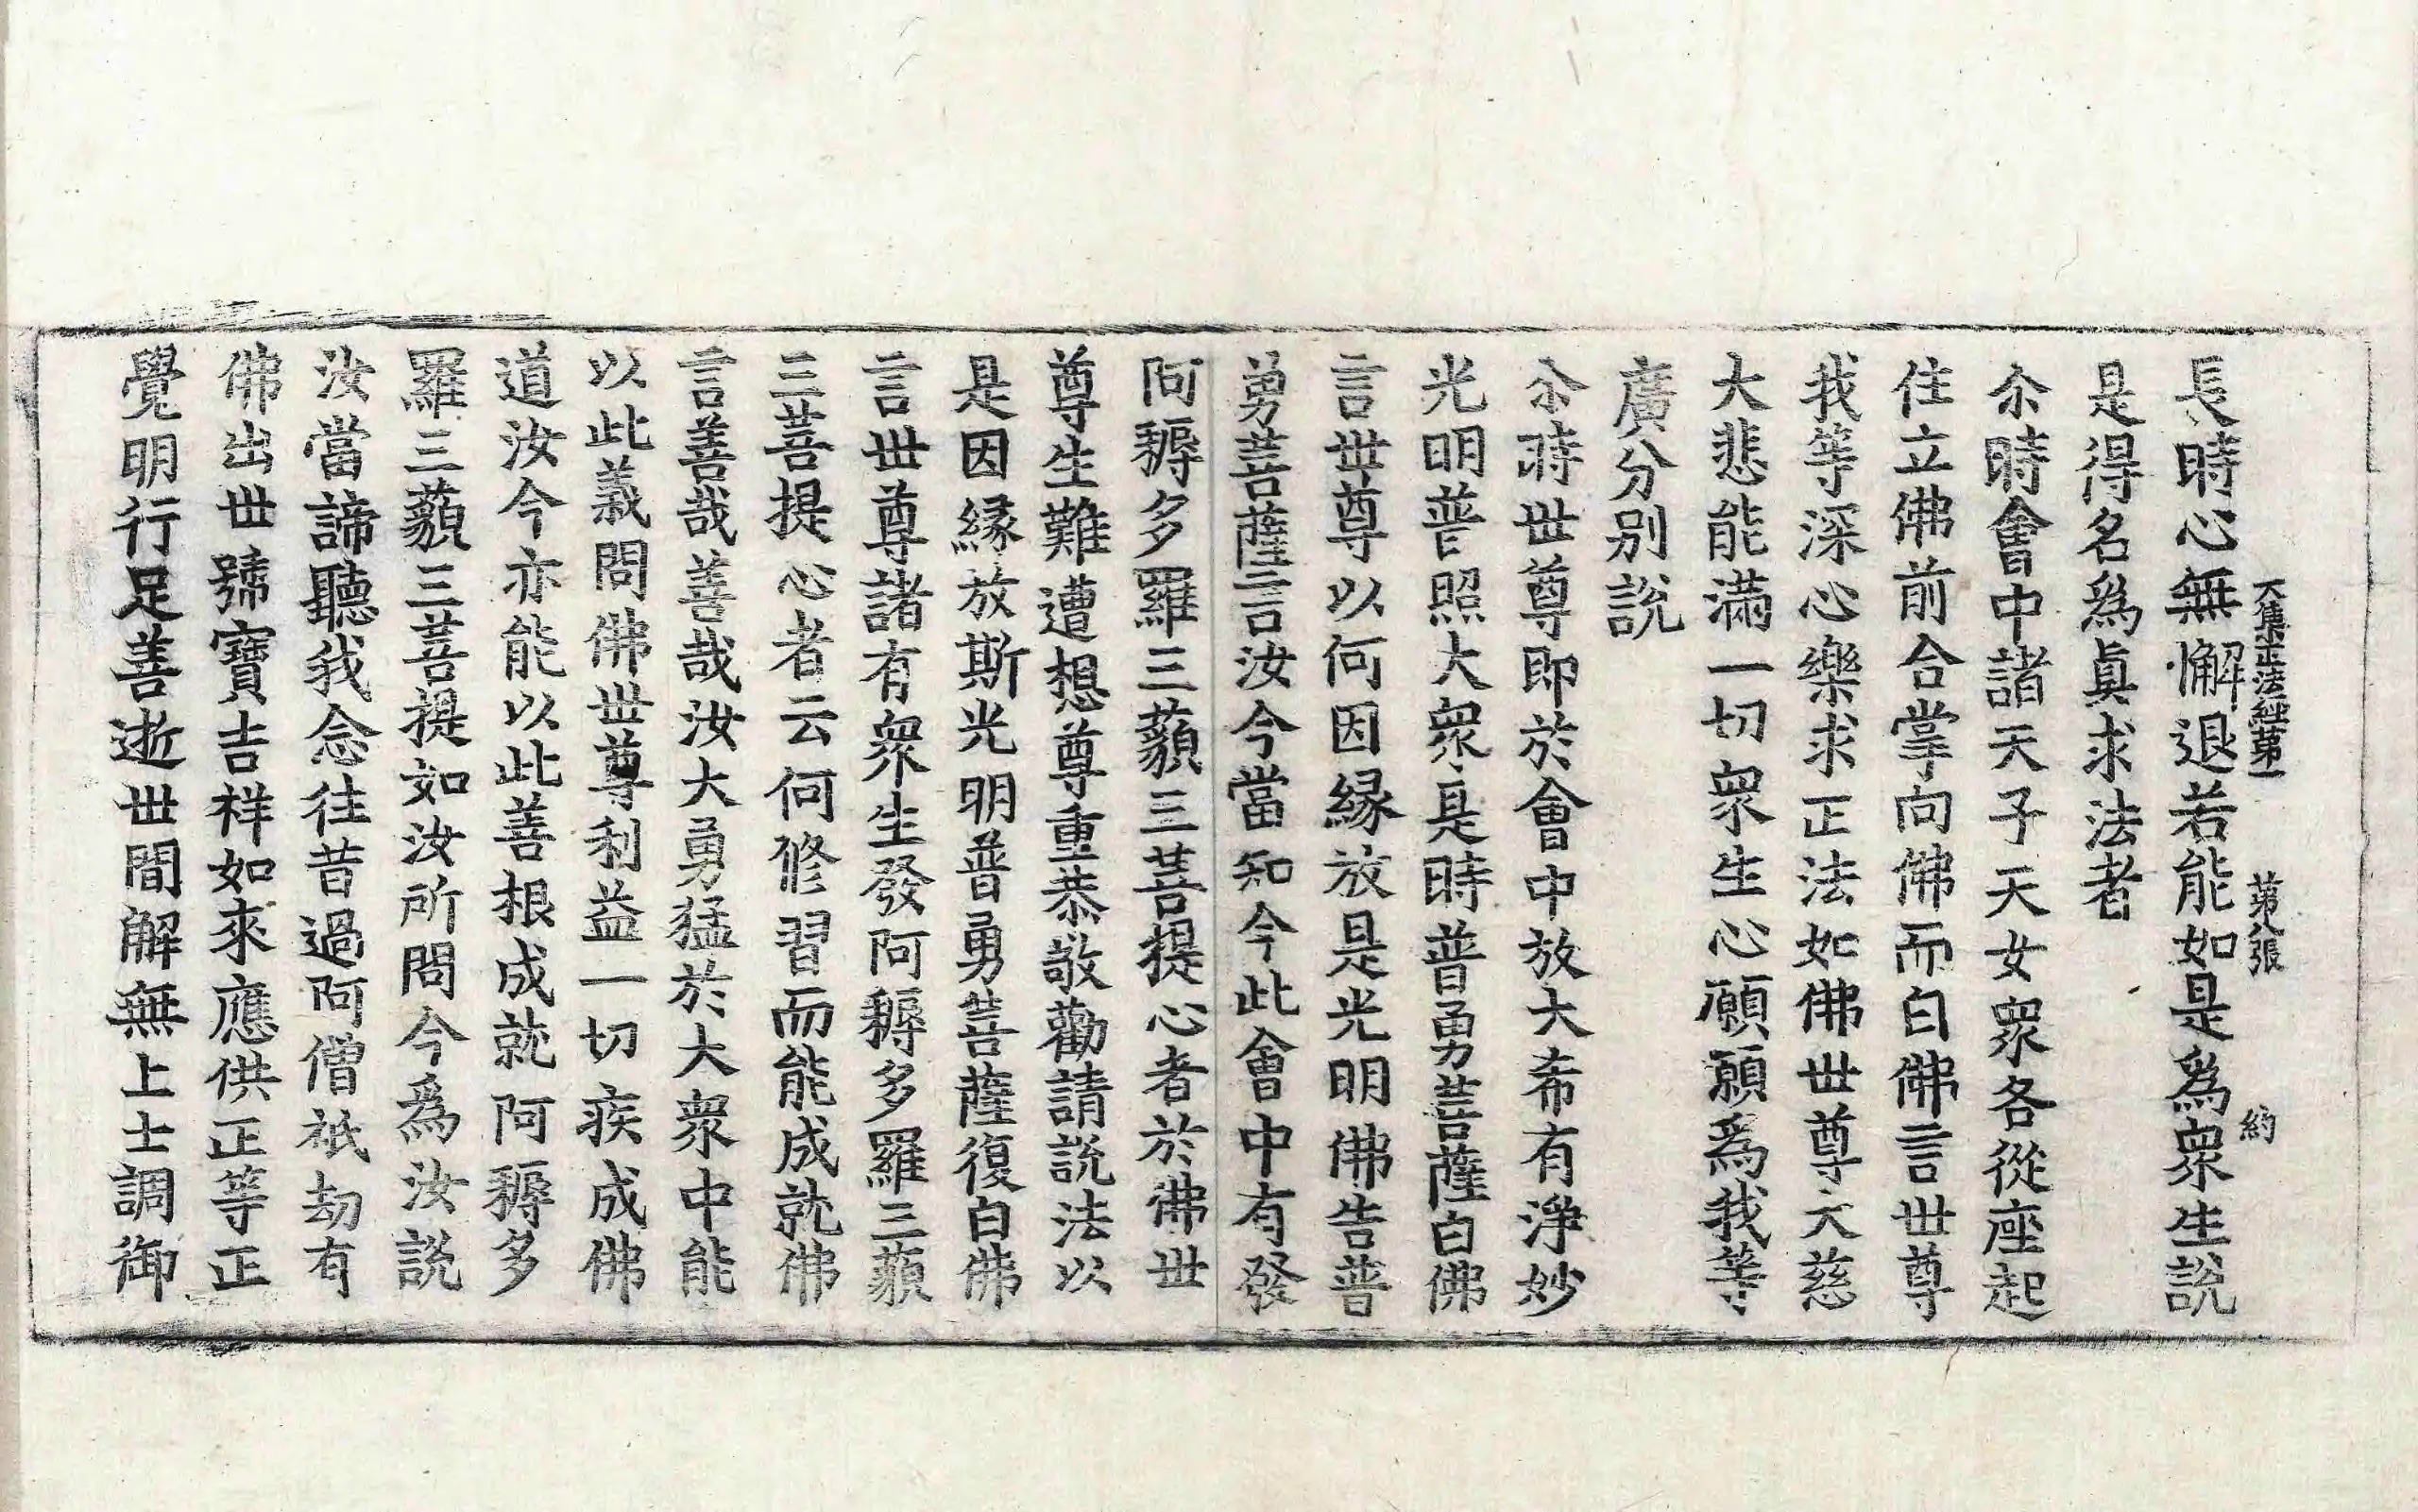 長時心無懈退若能如是爲衆生說
大集正法經第一　第八張　約
是得名爲眞求法者
尒時會中諸天子天女衆各從座起
住立佛前合掌向佛而白佛言世尊
我等深心樂求正法如佛世尊大慈
大悲能滿一切衆生心願願爲我等
廣分別說
尒時世尊即於會中放大希有淨妙
光明普照大衆是時普勇菩薩白佛
言世尊以何因緣放是光明佛告普
勇菩薩言汝今當知今此會中有發
阿耨多羅三藐三菩提心者於佛世
尊生難遭想尊重恭敬勸請說法以
是因緣放斯光明普勇菩薩復白佛
言世尊諸有衆生發阿耨多羅三藐
三菩提心者云何修習而能成就佛
言善哉善哉汝大勇猛於大衆中能
以此義問佛世尊利益一切疾成佛
道汝今亦能以此善根成就阿耨多
羅三藐三菩提如汝所問今爲汝說
汝當諦聽我念往昔過阿僧祇劫有
佛出世號寶吉祥如來應供正等正
覺明行足善逝世間解無上士調御